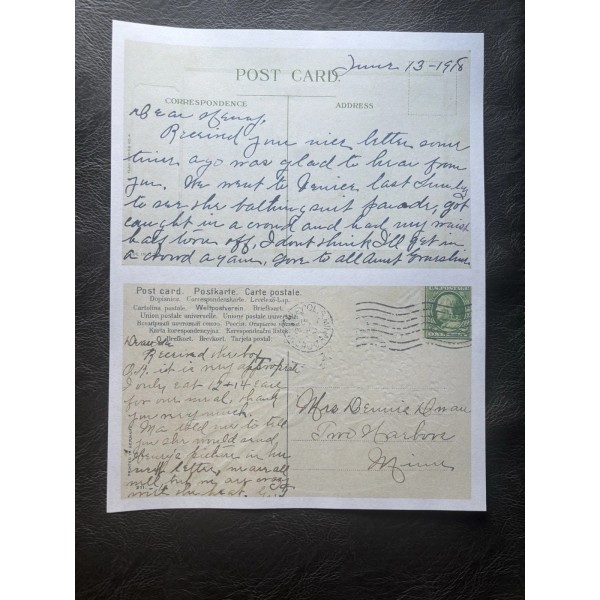 June 13-1918
POST CARD.
CORRESPONDENCE
ADDRESS
Dear Henry,
Received your nice letter some
time ago was glad to hear from
you. We went to Venice last Sunday
to see the bathing suit parade, got
caught in a crowd and had my waist
half torn off, I dont think I'll get in
a crowd again, love to all Aunt
Post card. Postkarte. Carte postale.
Dopisnica. Correspondenzkarte. Levelezö-Lap.
Cartolina postale. Weltpostverein. Briefkaart.
Union postale universelle. Unione postale universale.
Karta korespondencyjna. Korespondenční lístek.
Brefkort. Brevkort. Tarjeta postal
Dear
Received the box
O.K. it is very
I only eat 12 + 14
for one meal, thank
you very much.
Ma told me to tell
you she would send
Henry's picture in her
next letter, we are all
well, but
with the heat.
Mrs Dennie
Two Harbors
Minn